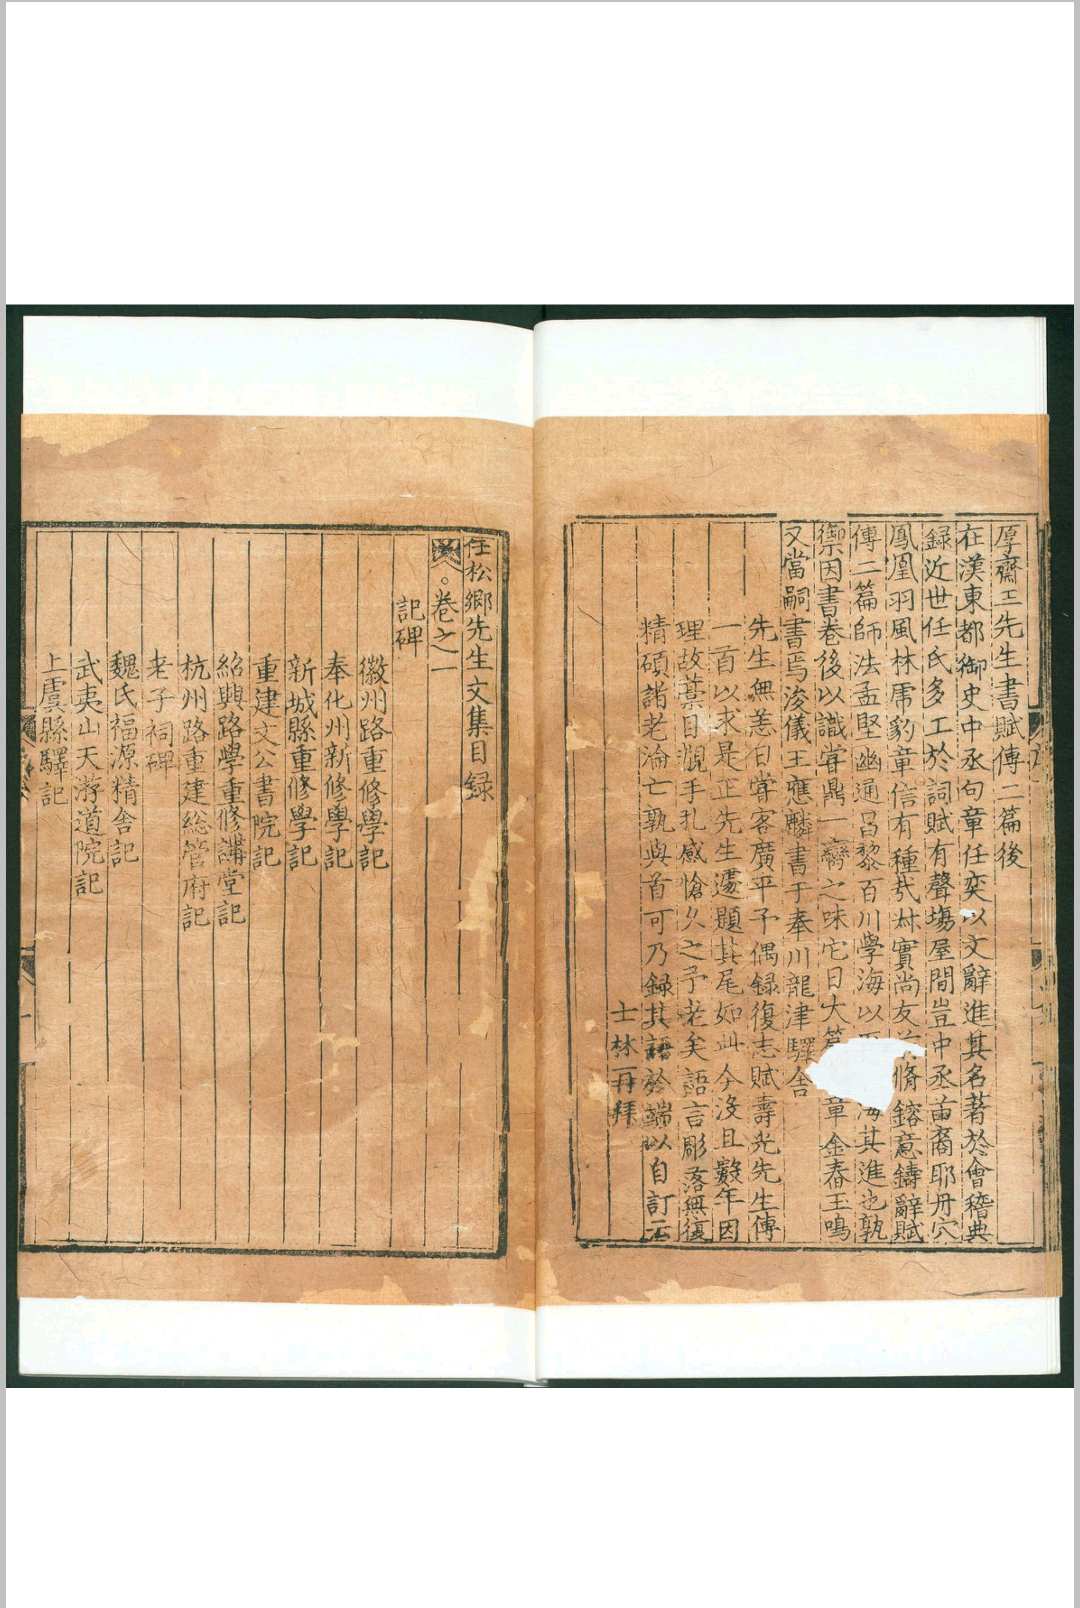 厚齋王先生書賦傳二篇後
在漢東都御史中丞句章任奕以文辭進其名著於會稽典
録近世任氏多工於詞賦有聲塲屋間豈中丞苗裔耶丹穴
鳳凰羽風林虎豹章信有種㢤林實尚友前脩鎔意鑄辭賦
傳二篇師法孟堅幽通昌黎百川學海以至海其進也孰
禦因書卷後以識甞鼎一臠之味它日大篇章金舂玉鳴
又當嗣書焉浚儀王應麟書于奉川龍津驛舍
先生無恙日甞客廣平予偶録復志賦壽光先生傳
一首以求是正先生遽題其尾如此今没且數年因
理故藁目覩手扎感愴久之予老矣語言彫落無復
精碩諸老淪亡孰與首可乃録其語於端以自訂云
士林再拜
任松鄉先生文集目録
卷之一
記碑
徽州路重修學記
奉化州新修學記
新城縣重修學記
重建文公書院記
紹興路學重修講堂記
杭州路重建総管府記
老子祠碑
魏氏福源精舍記
武夷山天游道院記
上虞縣驛記